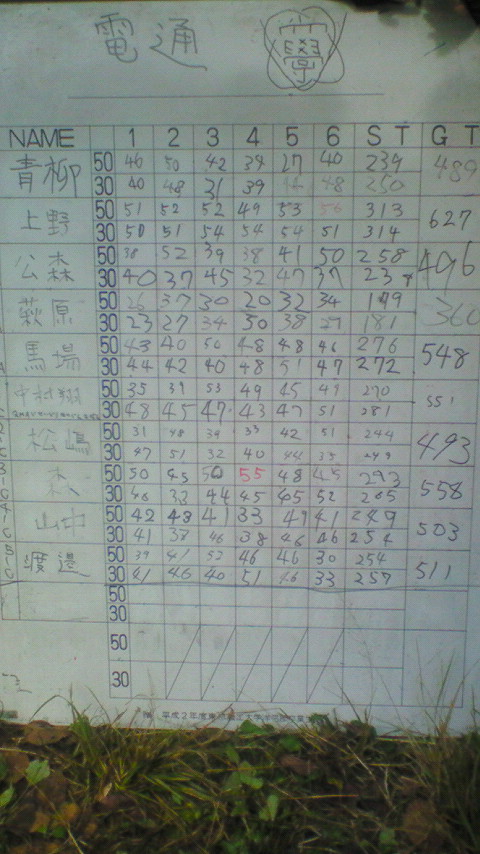 電通 學
NAME 1 2 3 4 5 6 S T G T
青柳 50 46 50 42 34 27 40 239 489
30 40 48 31 39 48 250
上野 50 51 52 52 49 53 56 313 627
30 50 51 54 54 54 51 314
公森 50 38 52 39 38 41 50 258 496
30 40 37 45 32 47 37
萩原 50 26 37 30 20 32 34 360
30 23 27 34 30 38 29 181
馬場 50 43 40 50 48 48 46 276 548
30 44 42 40 48 51 47 272
中村翔 50 35 39 53 49 45 49 270 551
30 48 45 47 43 47 51 281
松嶋 50 31 48 39 33 42 51 244 493
30 47 51 32 40 44 35 249
森 50 50 45 50 55 48 45 293 558
30 33 44 45 45 52 265
山中 50 42 43 41 33 49 41 249 503
30 41 38 46 38 46 254
渡邉 50 39 41 52 46 46 30 254 511
30 41 46 40 51 46 33 257
50
30
50
30